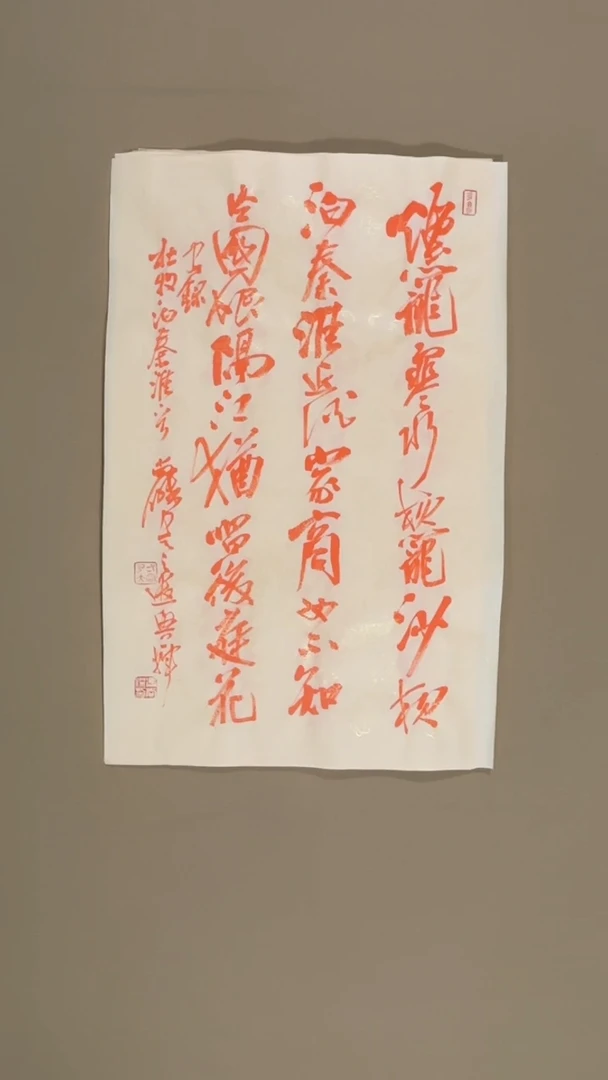 煙籠寒水籠沙夜
泊秦淮近酒家商女不知
亡國恨隔江猶唱後庭花
錄
杜牧泊秦淮